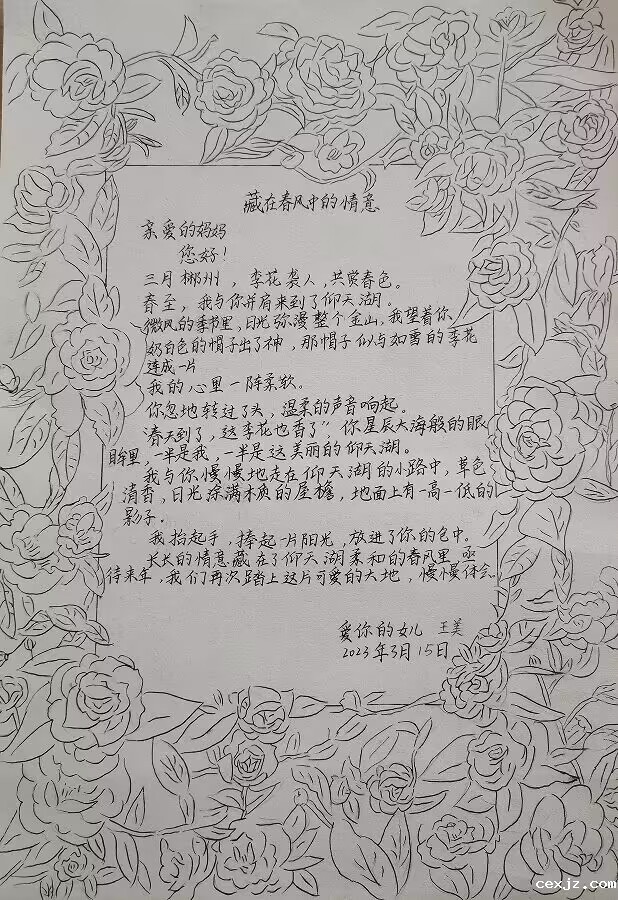 藏在春风中的情意
亲爱的妈妈
您好！
三月郴州，李花袭人，共赏春色。
春至，我与你并肩来到了仰天湖。
微风的季节里，日光弥漫整个金山，我望着你、
奶白色的帽子出了神，那帽子似与如雪的李花
连成一片
我的心里一阵柔软。
你忽地转过了头，温柔的声音响起。
春天到了，这李花也香了”你星辰大海般的眼
眸里，一半是我，一半是这美丽的仰天湖。
我与你慢慢地走在仰天湖的小路中，草色
清香，日光涂满木质的屋檐，地面上有一高一低的
影子.
我抬起手，捧起一片阳光，放进了你的包中。
长长的情意藏在了仰天湖柔和的春风里
待来年，我们再次踏上这片可爱的大地，慢慢体会
爱你的女儿 王美
2023年3月15日
cexjz.com